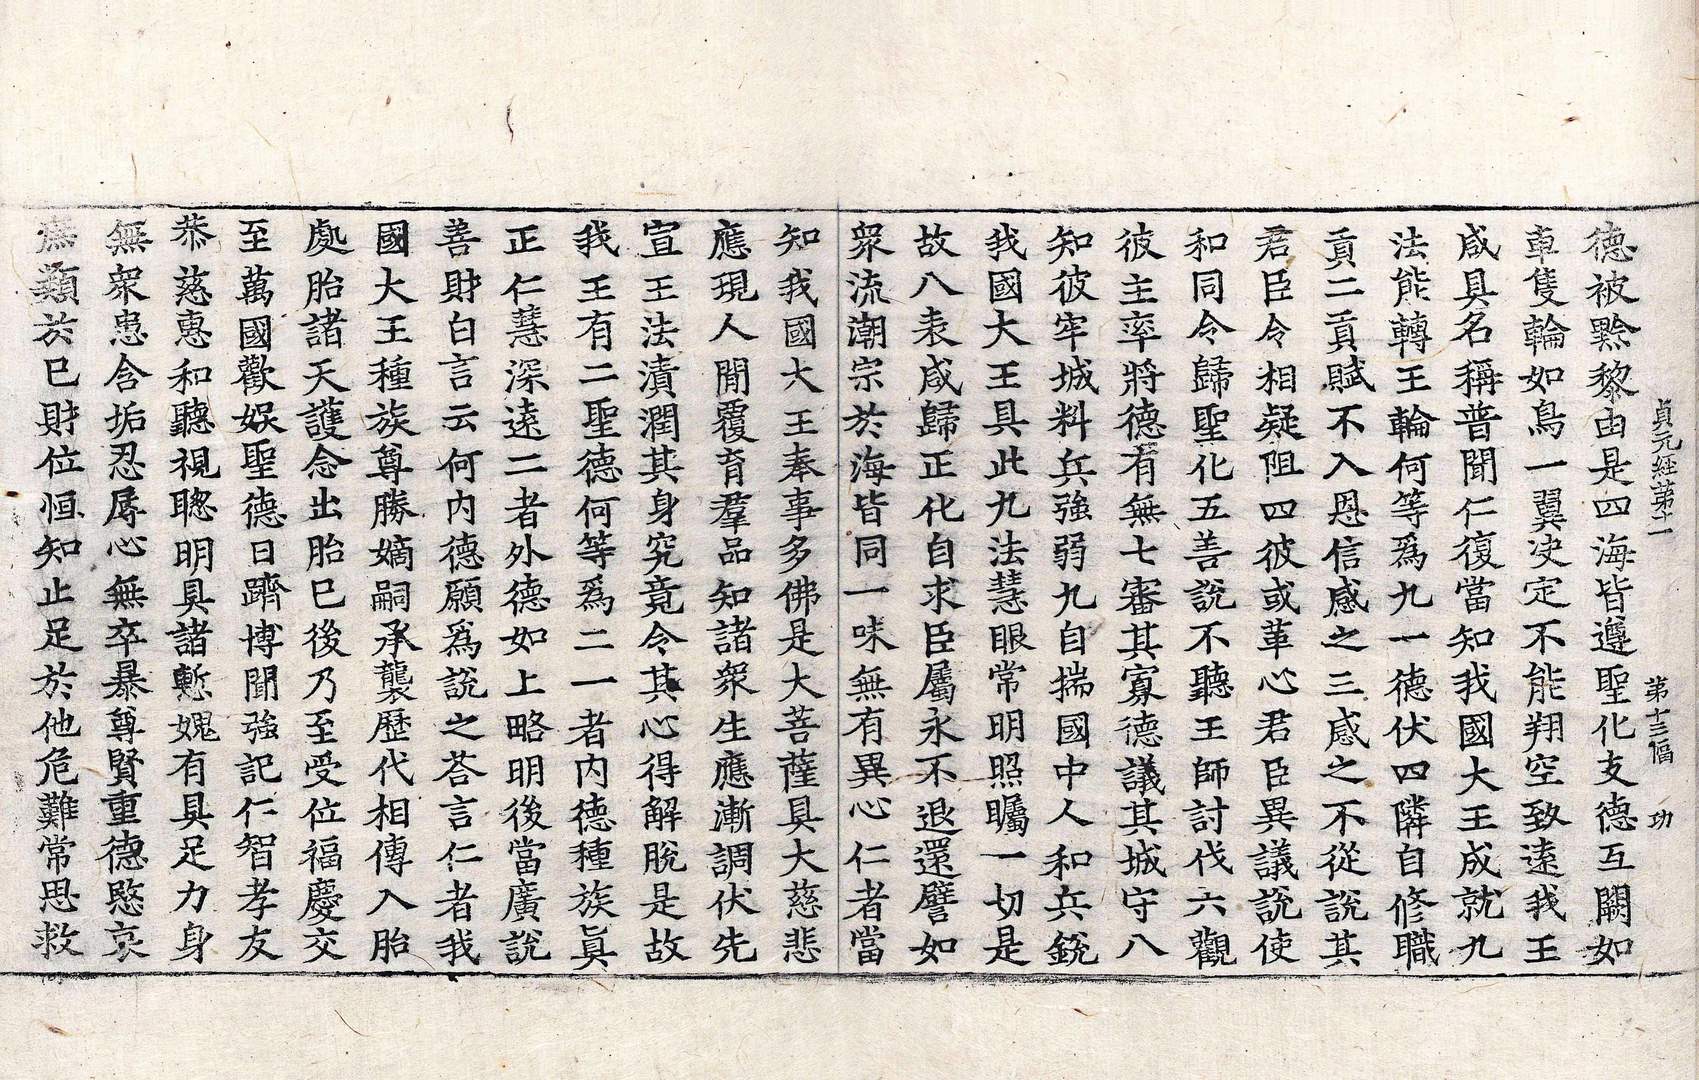 貞元經第十一 第十三幅 功
德被黔黎由是四海皆遵聖化支德互闕如
車隻輪如鳥一翼决定不能翔空致遠我王
咸具名稱普聞仁復當知我國大王成就九
法能轉王輪何等爲九一德伏四隣自修職
貢二貢賦不入恩信感之三感之不從說其
君臣令相疑阻四彼或革心君臣異議說使
和同令歸聖化五善說不聽王師討伐六觀
彼主率將德有無七審其寡德議其城守八
知彼牢城料兵強弱九自揣國中人和兵銳
我國大王具此九法慧眼常明照矚一切是
故八表咸歸正化自求臣屬永不退還譬如
衆流潮宗於海皆同一味無有異心仁者當
知我國大王奉事多佛是大菩薩具大慈悲
應現人間覆育羣品知諸衆生應漸調伏先
宣王法漬潤其身究竟令其心得解脫是故
我王有二聖德何等爲二一者内德種族眞
正仁慧深遠二者外德如上略明後當廣說
善財白言云何内德願爲說之荅言仁者我
國大王種族尊勝嫡嗣承襲歷代相傳入胎
處胎諸天護念出胎巳後乃至受位福慶交
至萬國歡娛聖德日躋博聞強記仁智孝友
恭慈惠和聽視聰明具諸慙媿有具足力身
無衆患含垢忍辱心無卒暴尊賢重德愍哀
庶類於巳財位恒知止足於他危難常思救